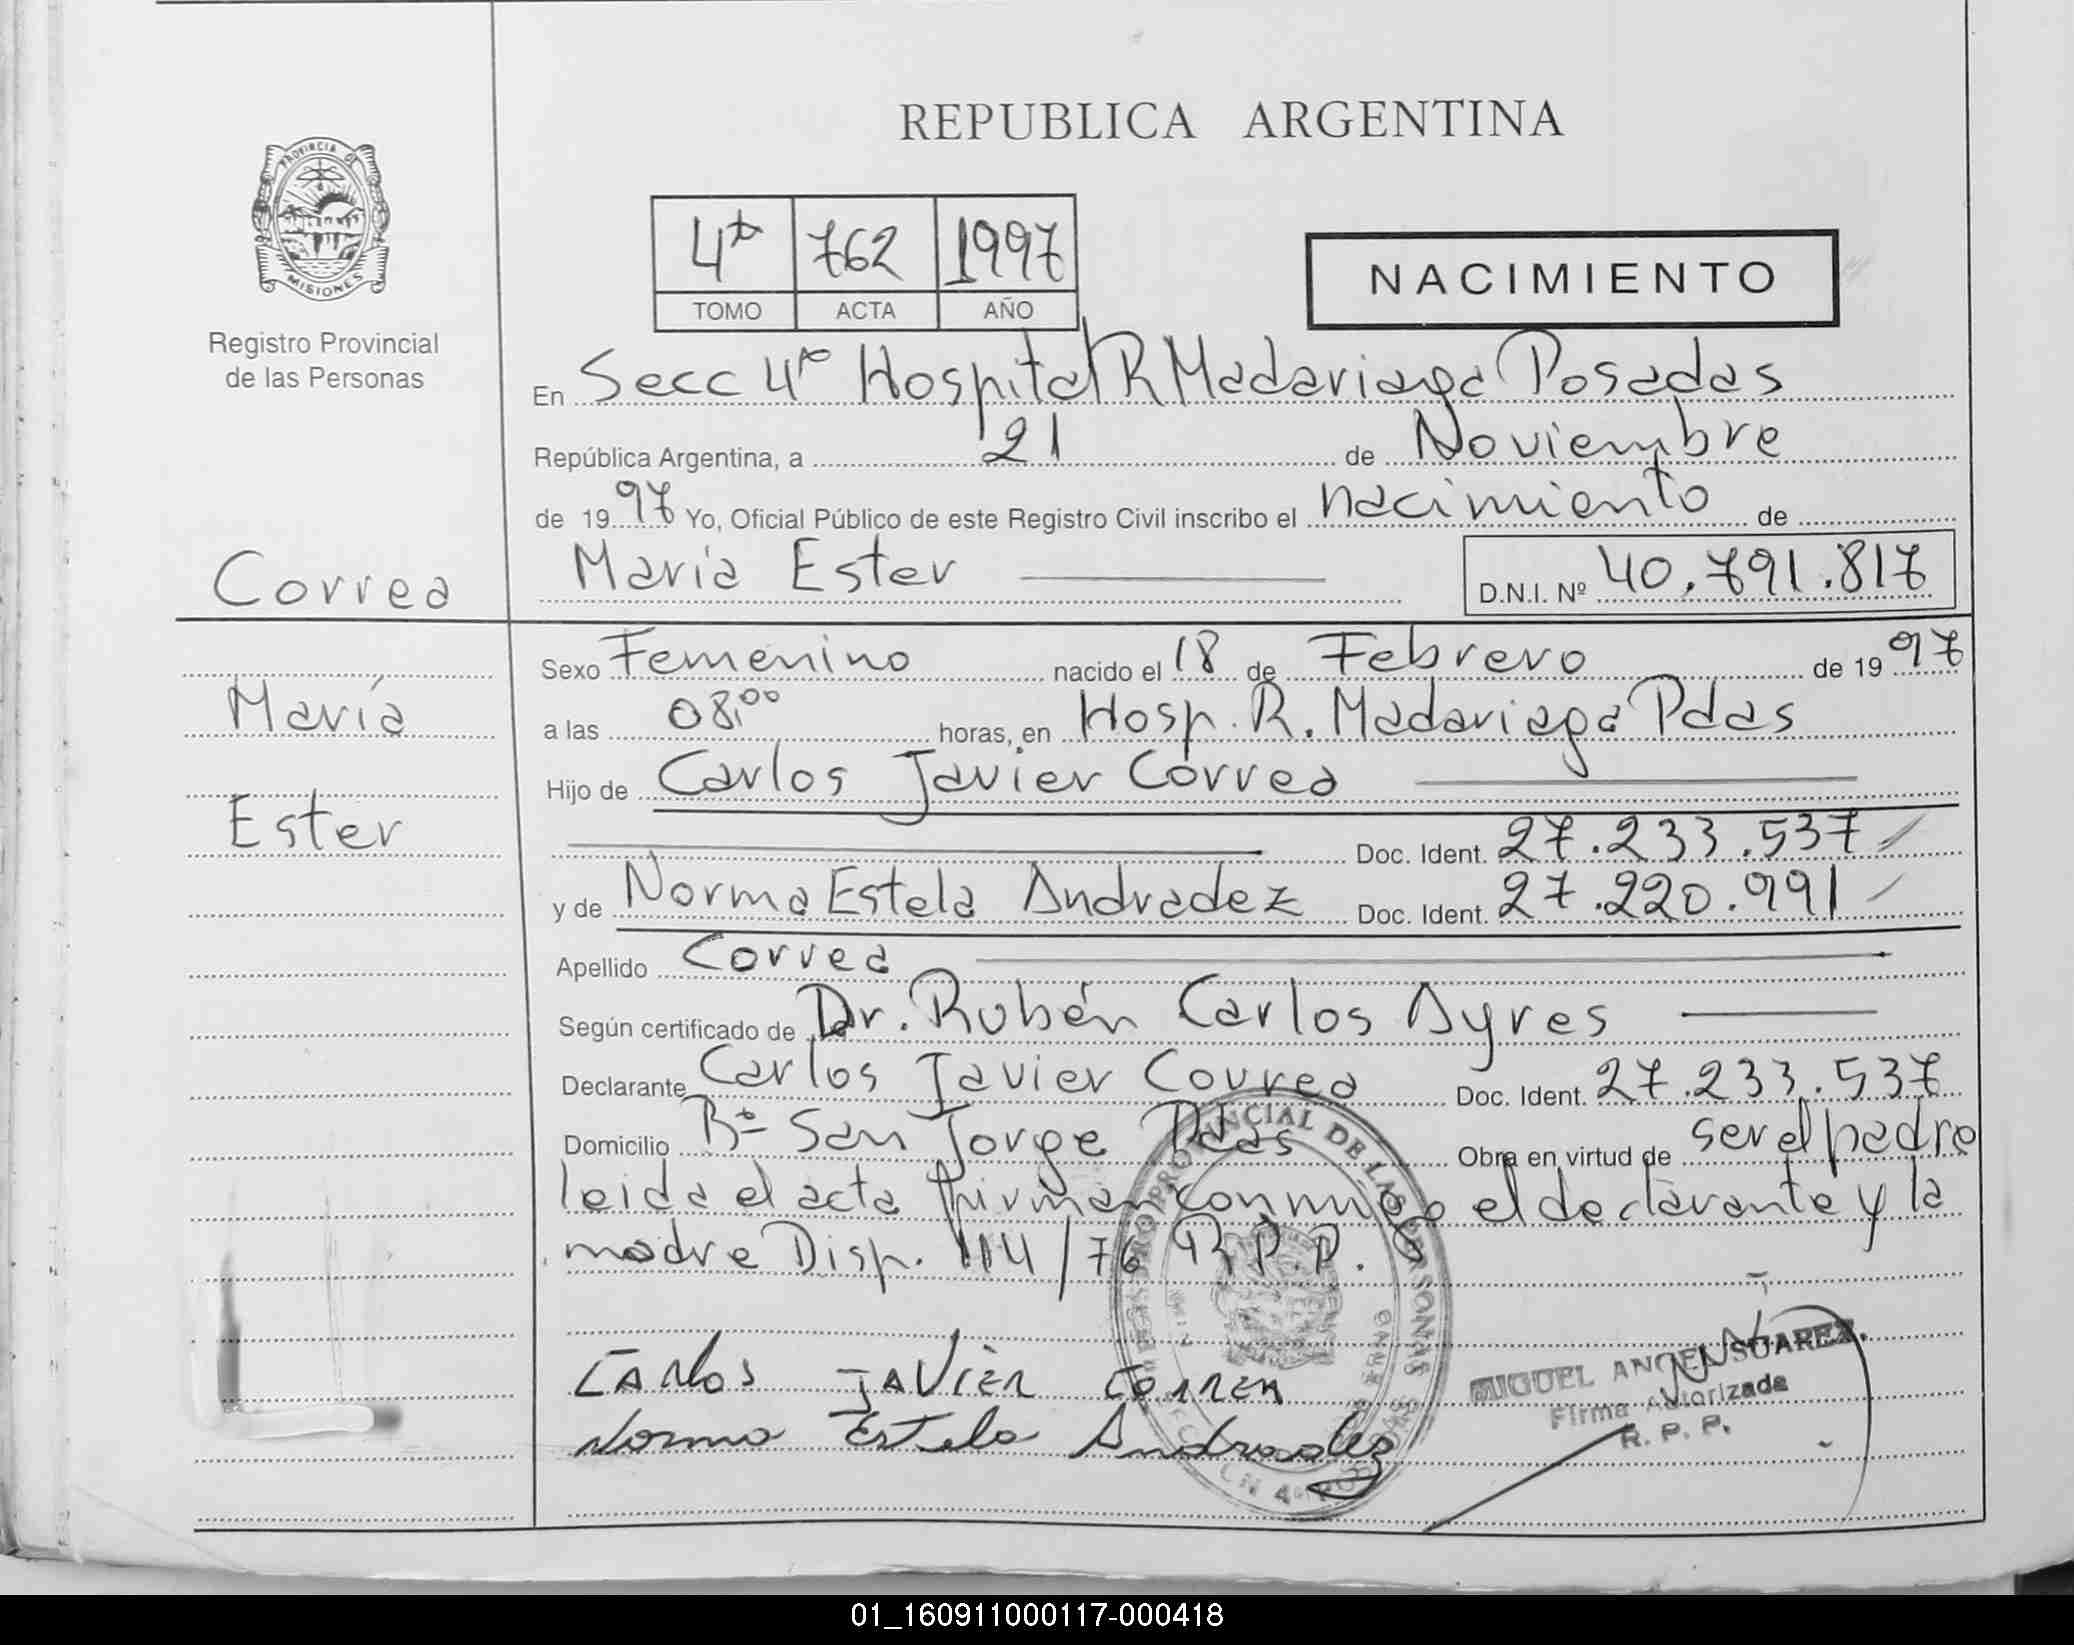 REPUBLICA ARGENTINA
PROVINCIA DE
MISIONES
Registro Provincial
de las Personas
4to 762 1997
TOMO ACTA AÑO
NACIMIENTO
En Secc 4ta Hospital R Madariaga Posadas
República Argentina, a 21 de Noviembre
de 1997 Yo, Oficial Público de este Registro Civil inscribo el nacimiento de
Correa
María Ester D.N.I. Nº 40.791.817
Sexo Femenino nacido el 18 de Febrero de 1997
María
a las 08,00 horas, en Hosp. R. Madariaga Pdas
Hijo de Carlos Javier Correa
Ester
Doc. Ident. 27.233.537
y de Norma Estela Andradez Doc. Ident. 27.220.991
Apellido Correa
Según certificado de Dr. Rubén Carlos Ayres
Declarante Carlos Javier Correa Doc. Ident. 27.233.537
Domicilio Bº San Jorge Pdas Obra en virtud de ser el padre
leida el acta firman conmigo el declarante y la
madre Disp. 114/76 R.P.P.
CARlos JAViER CORREA
Norma Estela Andradez
MIGUEL ANGEL SUAREZ
Firma Autorizada
R. P. P.
01_160911000117-000418